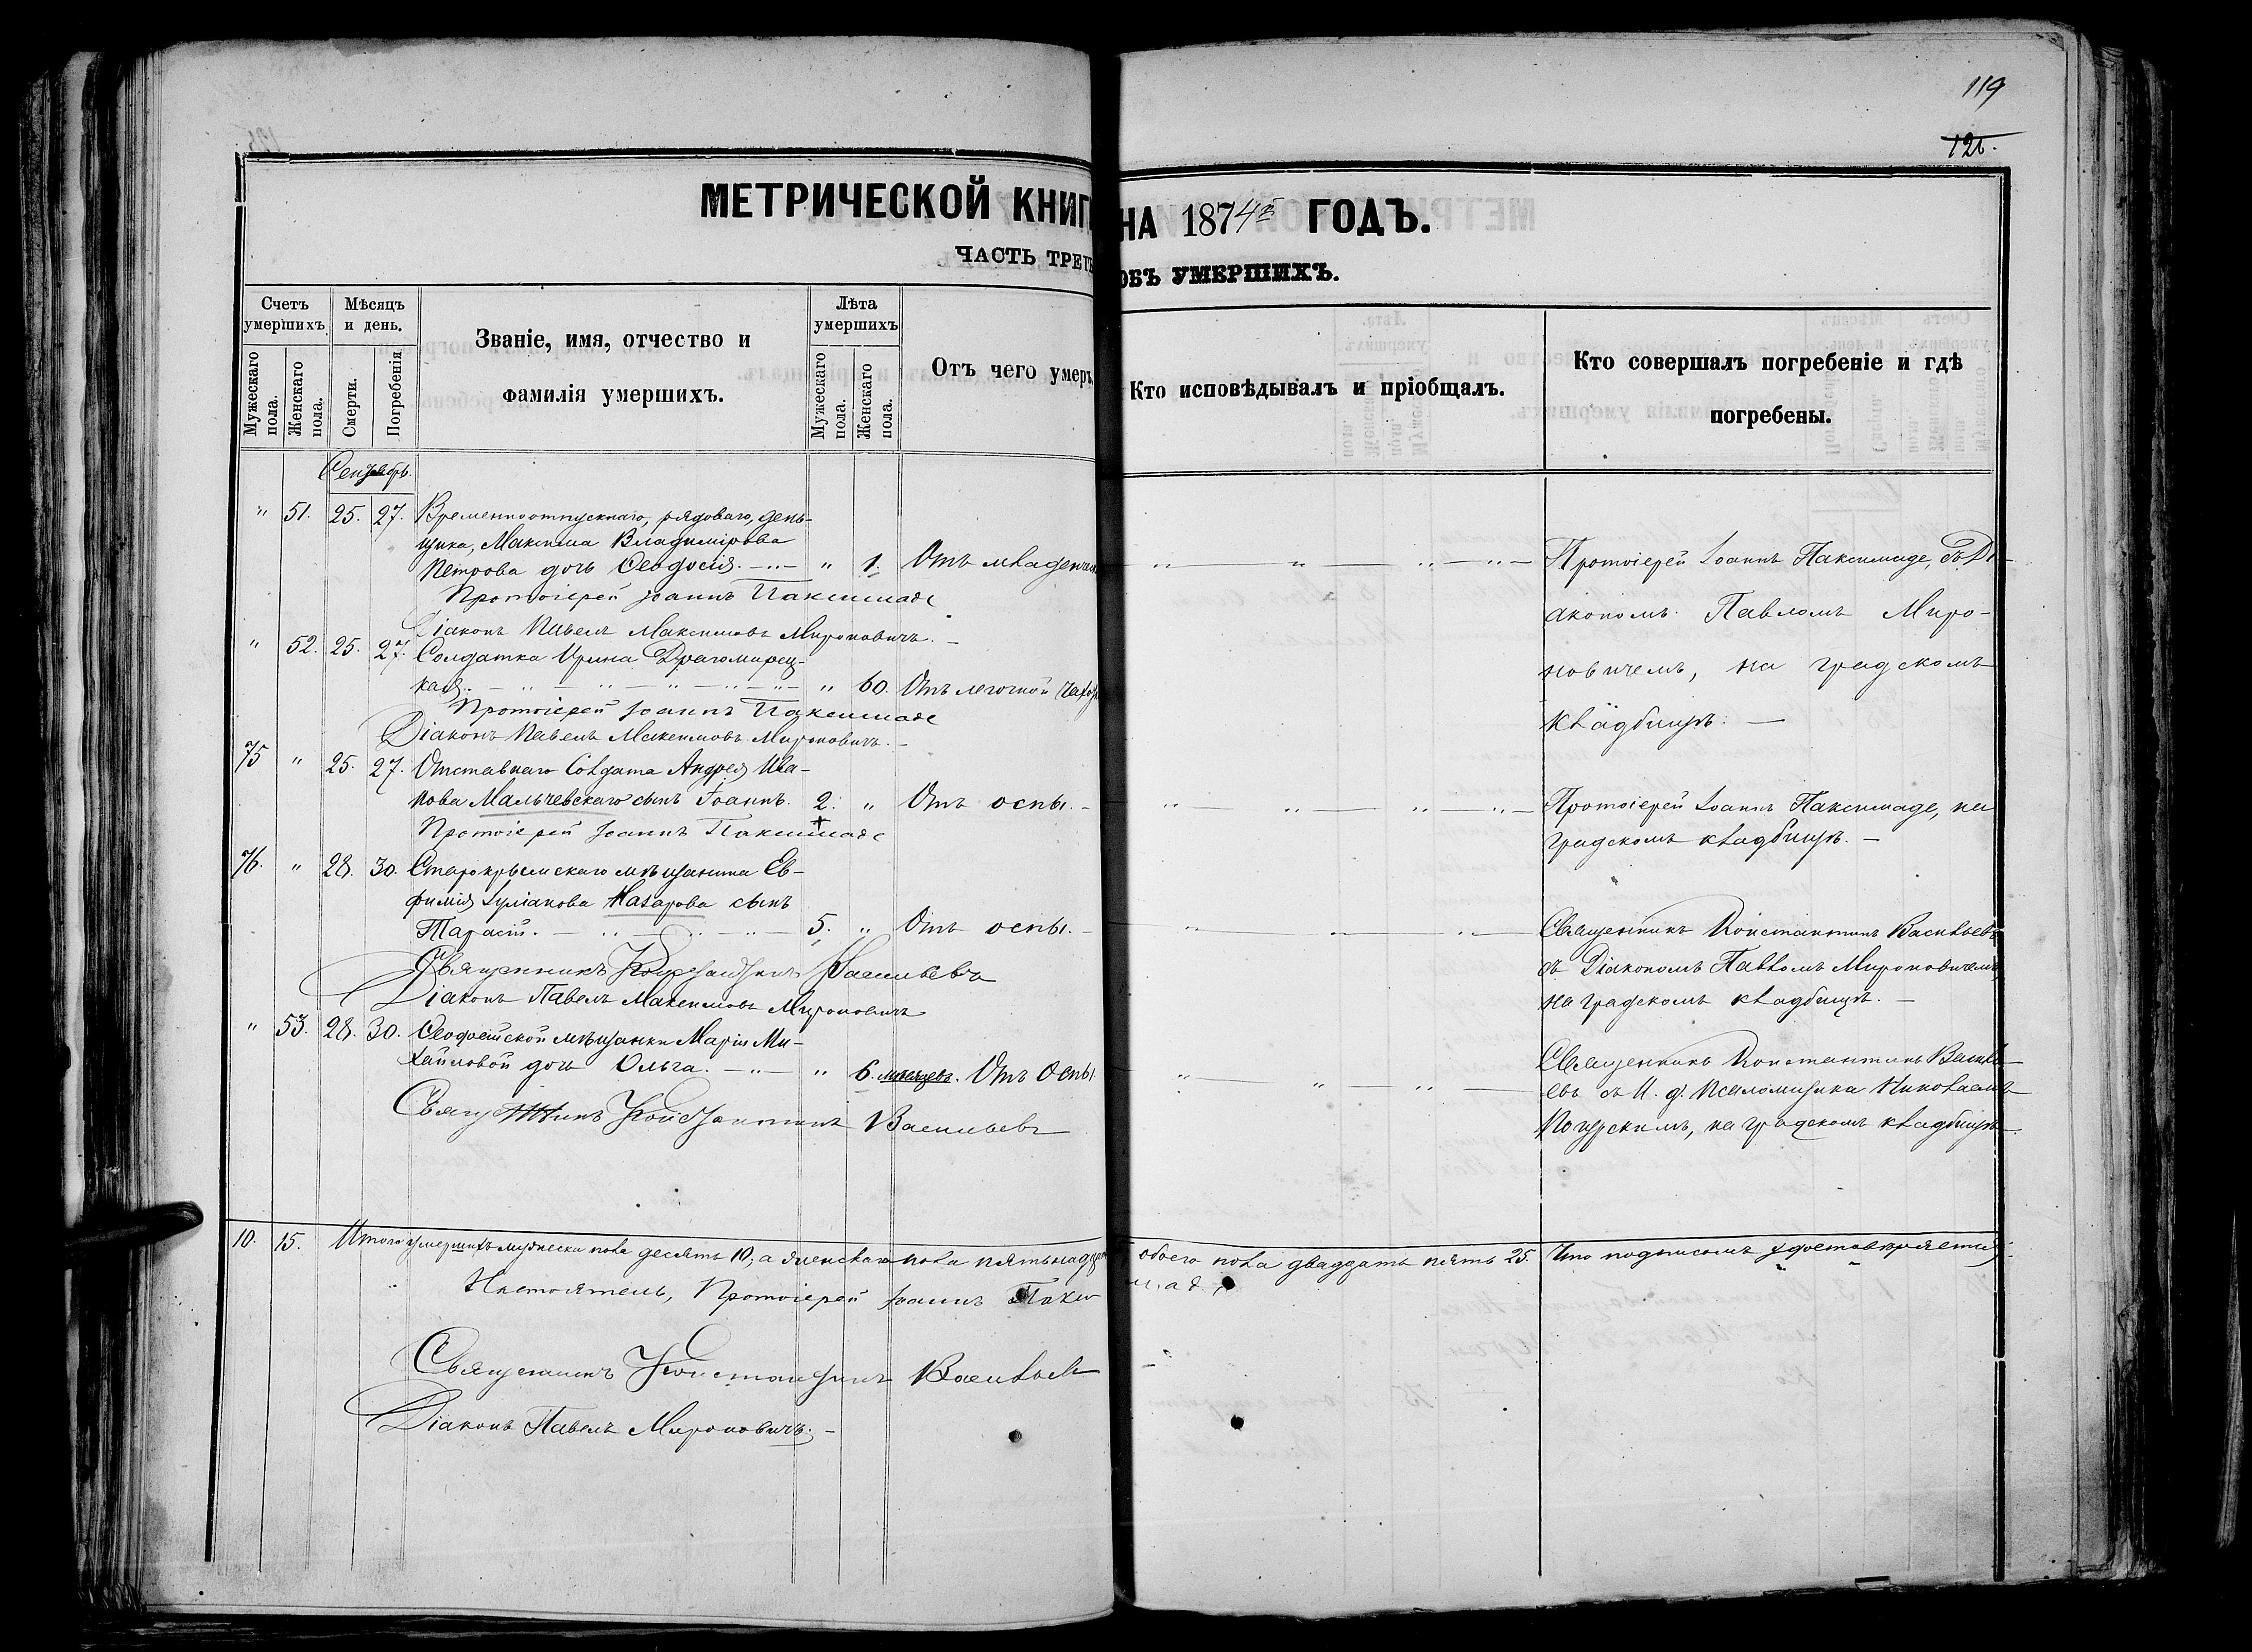 119
126.
МЕТРИЧЕСКОЙ КНИГ
НА 1874й ГОДЪ.
ЧАСТЬ ТРЕТЬ
ОБЪ УМЕРШИХЪ.
Счетъ умершихъ.
Мужескаго пола.
Женскаго пола.
Мѣсяцъ и день.
Смерти.
Погребенія
Званіе, имя, отчество и
фамилія умершихъ.
Лѣта умершихъ
Мужескаго пола.
Женскаго пола.
Отъ чего умеръ
Кто исповѣдывалъ и пріобщалъ.
Кто совершалъ погребеніе и гдѣ
погребены.
Сентябрь.
" 51. 25. 27. Временноотпускнаго, рядоваго, день-
щика, Максима Владимірова
Петрова дочь Ѳеодосія. " 1. Отъ младенчес
Протоіерей Іоаннъ Паксимаде
Діаконъ Павелъ Максимовъ Мироновичъ.
Протоіерей Іоаннъ Паксимаде, съ Ді-
акономъ Павломъ Миро-
новичемъ, на градскомъ
кладбищѣ. —
" 52. 25. 27. Солдатка Ирина Драгомирец-
кая. " 60. Отъ легочной чахот
Протоіерей Іоаннъ Паксимаде
Діаконъ Павелъ Максимовъ Мироновичъ. -
75 " 25. 27. Отставнаго Солдата Андрея Ива-
нова Мальчевскаго сынъ Іоаннъ. 2. " Отъ оспы. -
Протоіерей Іоаннъ Паксимаде
Протоіерей Іоаннъ Паксимаде, на
градскомъ кладбищѣ. —
76. " 28. 30. Старокрымскаго мѣщанина Ев-
фимія Іуліанова Назарова сынъ
Тарасій. 5. " Отъ оспы. -
Священникъ Константинъ Васильевъ
Діаконъ Павелъ Максимовъ Мироновичъ
Священникъ Константинъ Васильевъ
съ Діакономъ Павломъ Мироновичемъ,
на градскомъ кладбищѣ. —
" 53. 28. 30. Ѳеодосійской мѣщанки Маріи Ми-
хайловой дочь Ольга. " 6. мѣсяцевъ. Отъ Оспы.
Священникъ Константинъ Васильевъ
Священникъ Константинъ Василь-
евъ съ И. д. Псаломщика Николаемъ
на градскомъ кладбищѣ.
10. 15. Итого умершихъ мужеска пола десять 10, а женскаго пола пятьнадца обоего пола двадцать пять 25. Что подписомъ удостовѣряется:
Настоятель, Протоіерей Іоаннъ Пакси маде
Священникъ Константинъ Васильевъ
Діаконъ Павелъ Мироновичъ. -